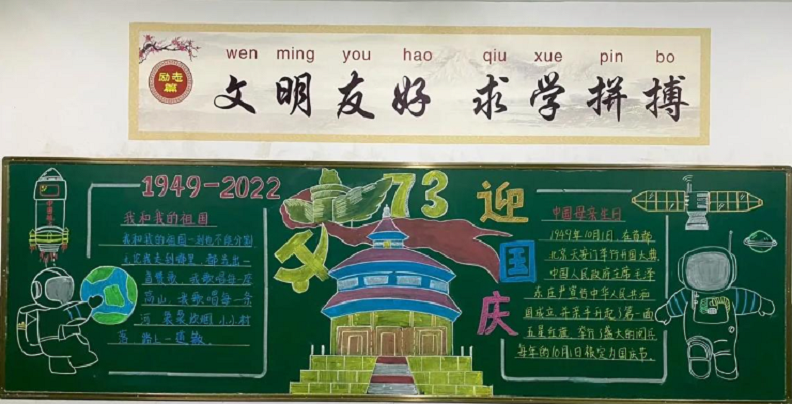 wen ming you hao qiu xue pin bo
励志篇
文明友好 求学拼搏
1949-2022
我和我的祖国
我和我的祖国一刻也不能分割
无论我走到哪里，都流出一
首赞歌，我歌唱每一座
高山，我歌唱每一条
河，袅袅炊烟，小小村
落，路上一道辙。
73
迎国庆
中国母亲生日
1949年10月1日，在首都
北京天安门举行开国大典
中国人民政府主席毛泽
东庄严宣布中华人民共和
国成立，并亲手升起了第一面
五星红旗，举行了盛大的阅兵
每年的10月1日被定为国庆节。